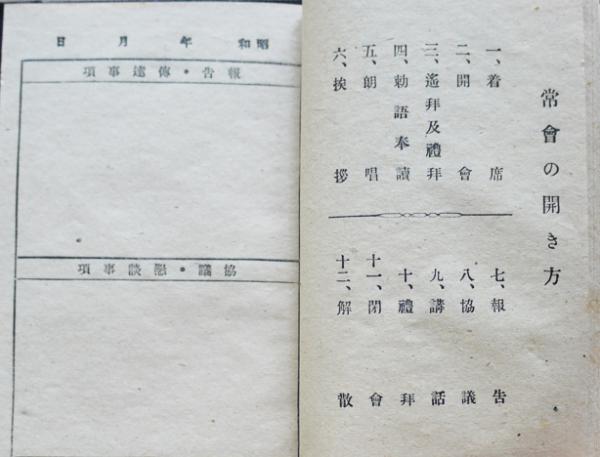 常會の開き方
一、着席
二、開會
三、遙拜及禮拜
四、勅語奉讀
五、朗唱
六、挨拶
七、報告
八、協議
九、講話
十、禮拜
十一、閉會
十二、解散
日 月 年 和昭
項事達傳・告報
項事談懇・議協